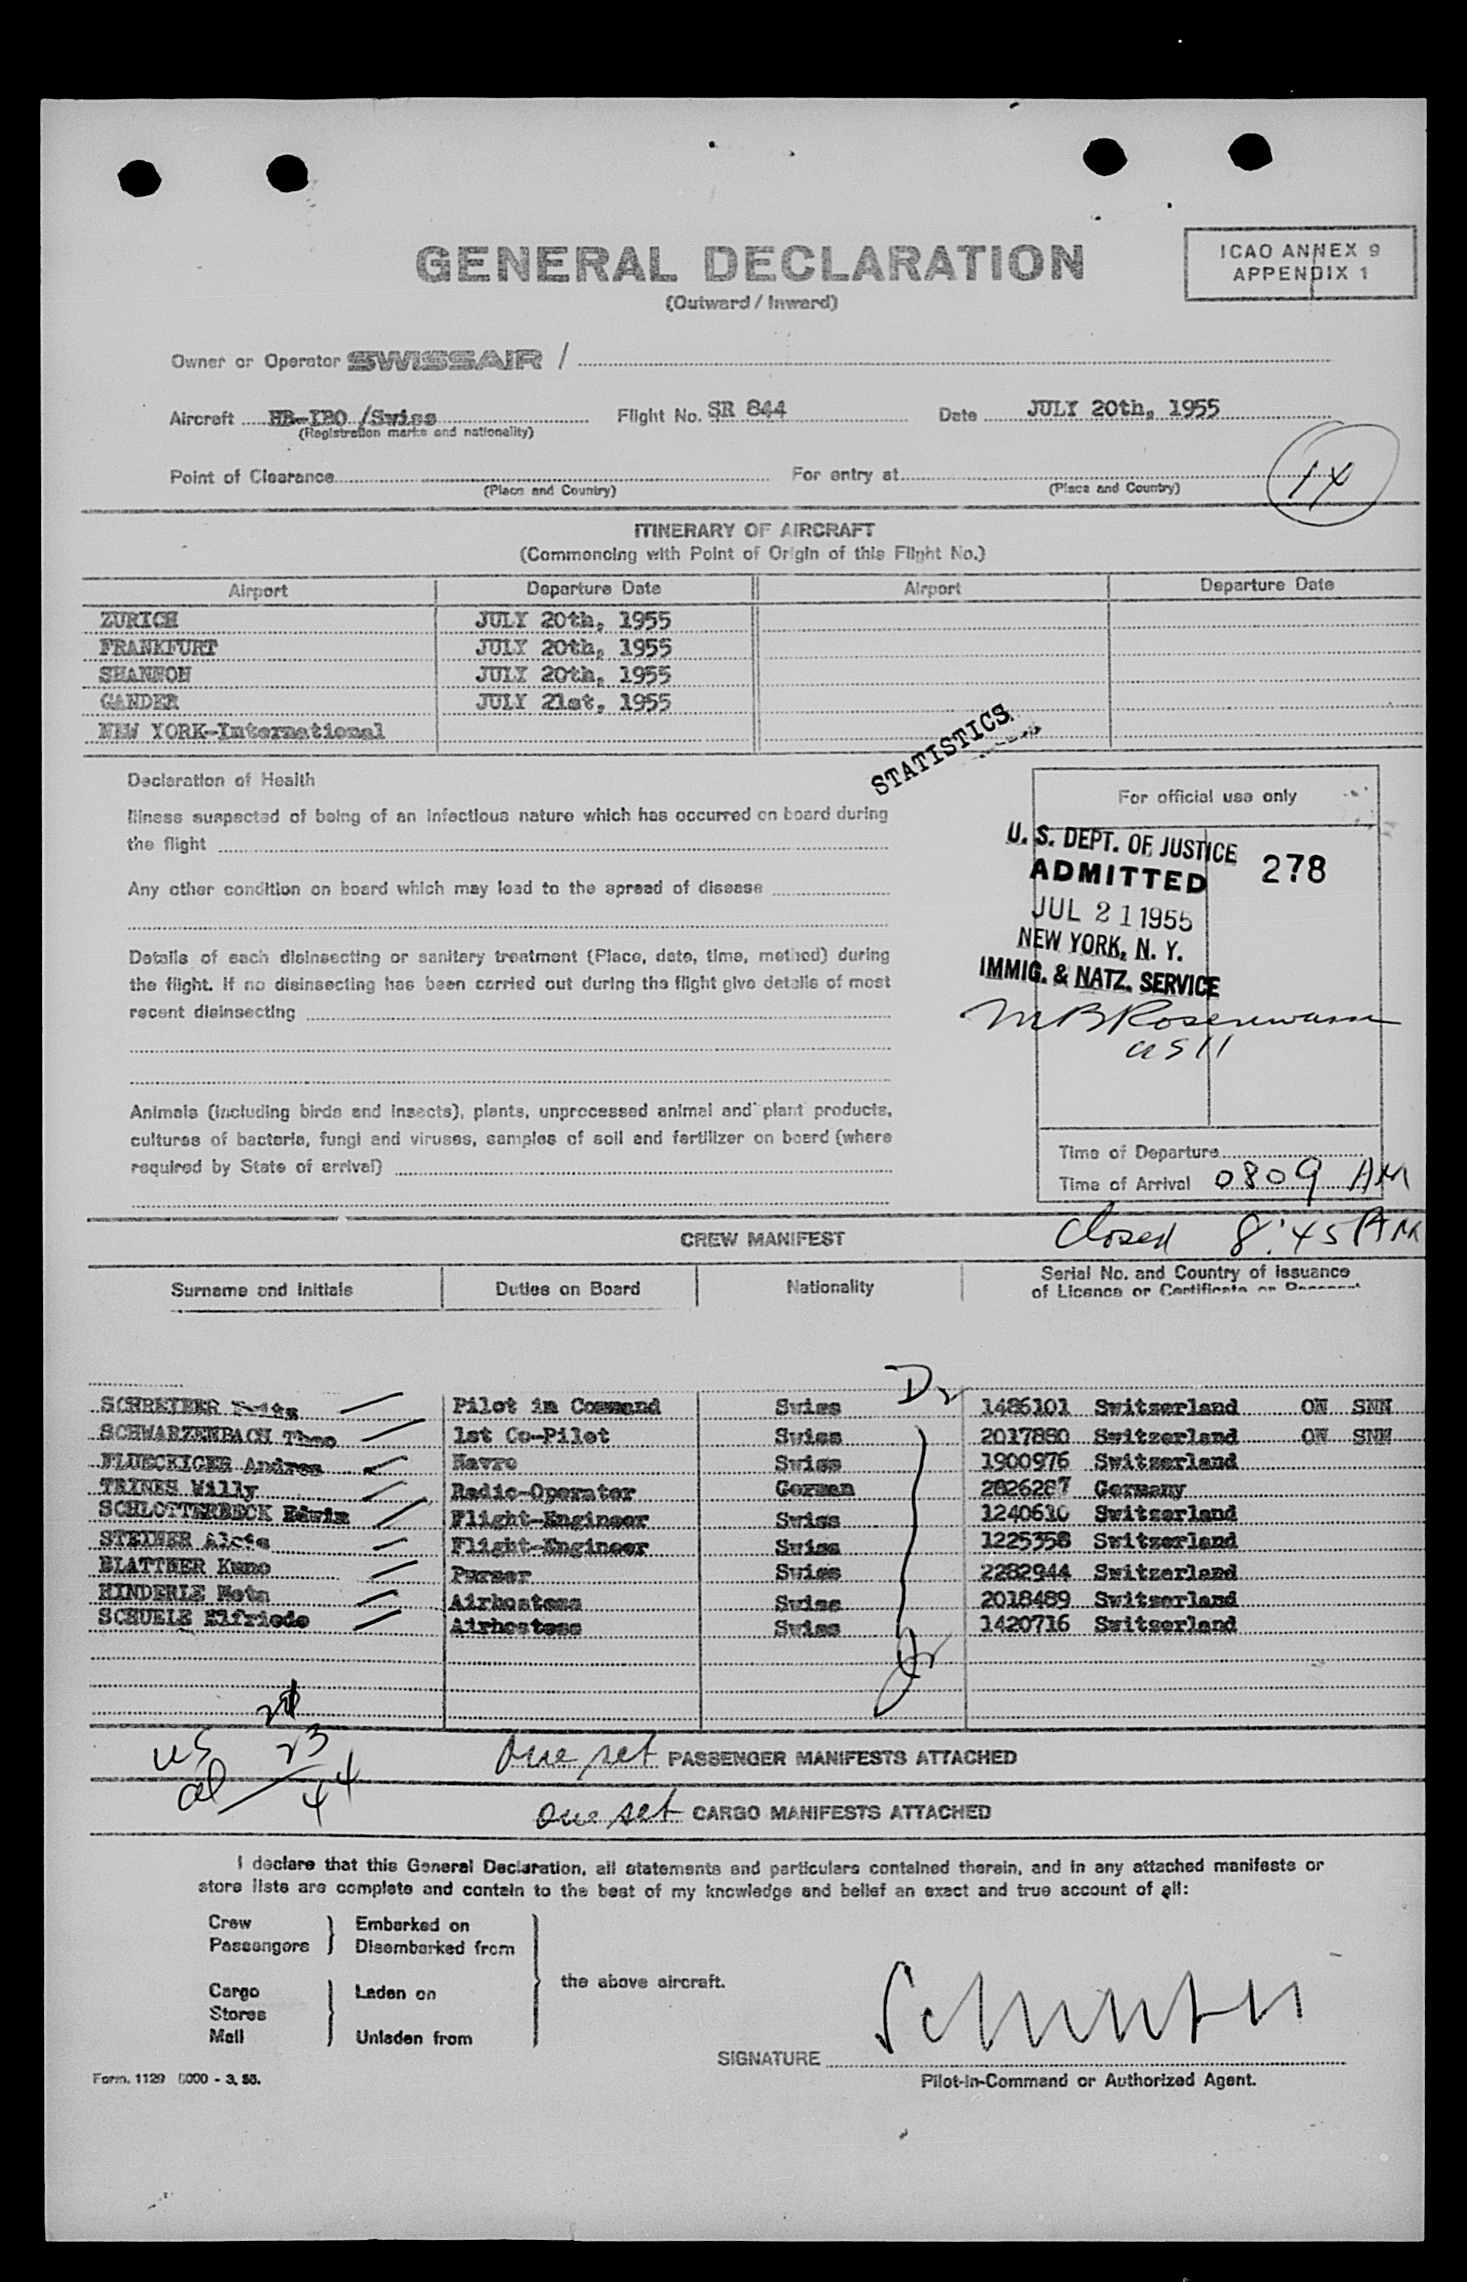 GENERAL DECLARATION
(Outward / Inward)
ICAO ANNEX 9
APPENDIX 1
Owner or Operator SWISSAIR /
Aircraft HB-IBO /Swiss Flight No. SR 844 Date JULY 20th, 1955
(Registration marks and nationality)
Point of Clearance For entry at
(Place and Country) (Place and Country)
ITINERARY OF AIRCRAFT
(Commencing with Point of Origin of this Flight No.)
Airport Departure Date Airport Departure Date
ZURICH JULY 20th, 1955
FRANKFURT JULY 20th, 1955
SHANNON JULY 20th, 1955
GANDER JULY 21st, 1955
NEW YORK-International
STATISTICS
Declaration of Health
Illness suspected of being of an infectious nature which has occurred on board during
the flight
Any other condition on board which may lead to the spread of disease
Details of each disinsecting or sanitary treatment (Place, date, time, method) during
the flight. If no disinsecting has been carried out during the flight give details of most
recent disinsecting
Animals (including birds and insects), plants, unprocessed animal and plant products,
cultures of bacteria, fungi and viruses, samples of soil and fertilizer on board (where
required by State of arrival)
For official use only
U. S. DEPT. OF JUSTICE 278
ADMITTED
JUL 21 1955
NEW YORK, N. Y.
IMMIG. & NATZ. SERVICE
Time of Departure
Time of Arrival 0809 AM
closed 8:45 AM
CREW MANIFEST
Surname and Initials Duties on Board Nationality Serial No. and Country of issuance
of Licence or Certificate or Passport
SCHREIBER Pilot in Command Swiss 1486101 Switzerland ON SNN
SCHWARZENBACH Theo 1st Co-Pilot Swiss 2017880 Switzerland ON SNN
FLUECKIGER Andres Navro Swiss 1900976 Switzerland
TRINES Willy Radio-Operator German 2826287 Germany
SCHLOTTERBECK Edwin Flight-Engineer Swiss 1240610 Switzerland
STEINER Alois Flight-Engineer Swiss 1225358 Switzerland
BLATTNER Kuno Purser Swiss 2282944 Switzerland
HINDERLE Meta Airhostess Swiss 2018489 Switzerland
SCHUELE Elfriede Airhostess Swiss 1420716 Switzerland
21
us 23
al 44
One set PASSENGER MANIFESTS ATTACHED
one set CARGO MANIFESTS ATTACHED
I declare that this General Declaration, all statements and particulars contained therein, and in any attached manifests or
store lists are complete and contain to the best of my knowledge and belief an exact and true account of all:
Crew Embarked on
Passengers Disembarked from
the above aircraft.
Cargo Laden on
Stores
Mail Unladen from
SIGNATURE
Pilot-in-Command or Authorized Agent.
Form. 1129 5000 - 3. 55.